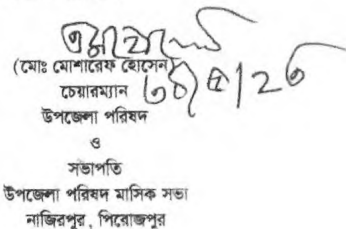 (মোঃ মোশারেফ হোসেন)
চেয়ারম্যান
উপজেলা পরিষদ
ও
সভাপতি
উপজেলা পরিষদ মাসিক সভা
নাজিরপুর, পিরোজপুর